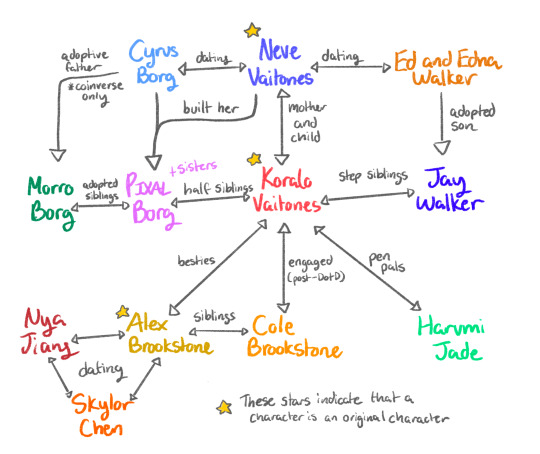 adoptive
father
*coinverse
only
Cyrus
Borg
dating
Neve
Vaitones
dating
Ed and Edna
Walker
built her
mother
and
child
adopted
son
Morro
Borg
adopted
siblings
PIXAL
Borg
+sisters
half siblings
Korala
Vaitones
step siblings
Jay
Walker
besties
engaged
(post-DotD)
pen
pals
Nya
Jiang
Alex
Brookstone
siblings
Cole
Brookstone
Harumi
Jade
dating
Skylor
Chen
These stars indicate that a
character is an original character